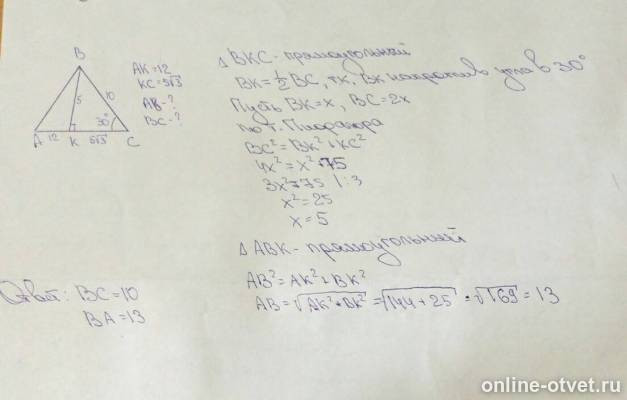 B
AK=12
KC=5√3
AB-?
BC-?
5
10
30°
A 12 K 5√3 C
Δ BKC - прямоугольный
BK=½ BC, т.к. BK напротив угла в 30°
Пусть BK=x, BC=2x
по т. Пифагора
BC²=BK²+KC²
4x²=x²+75
3x²=75 |:3
x²=25
x=5
Δ ABK - прямоугольный
AB²=AK²+BK²
AB=√AK²+BK²=√144+25=√169=13
Ответ: BC=10
BA=13
online-otvet.ru